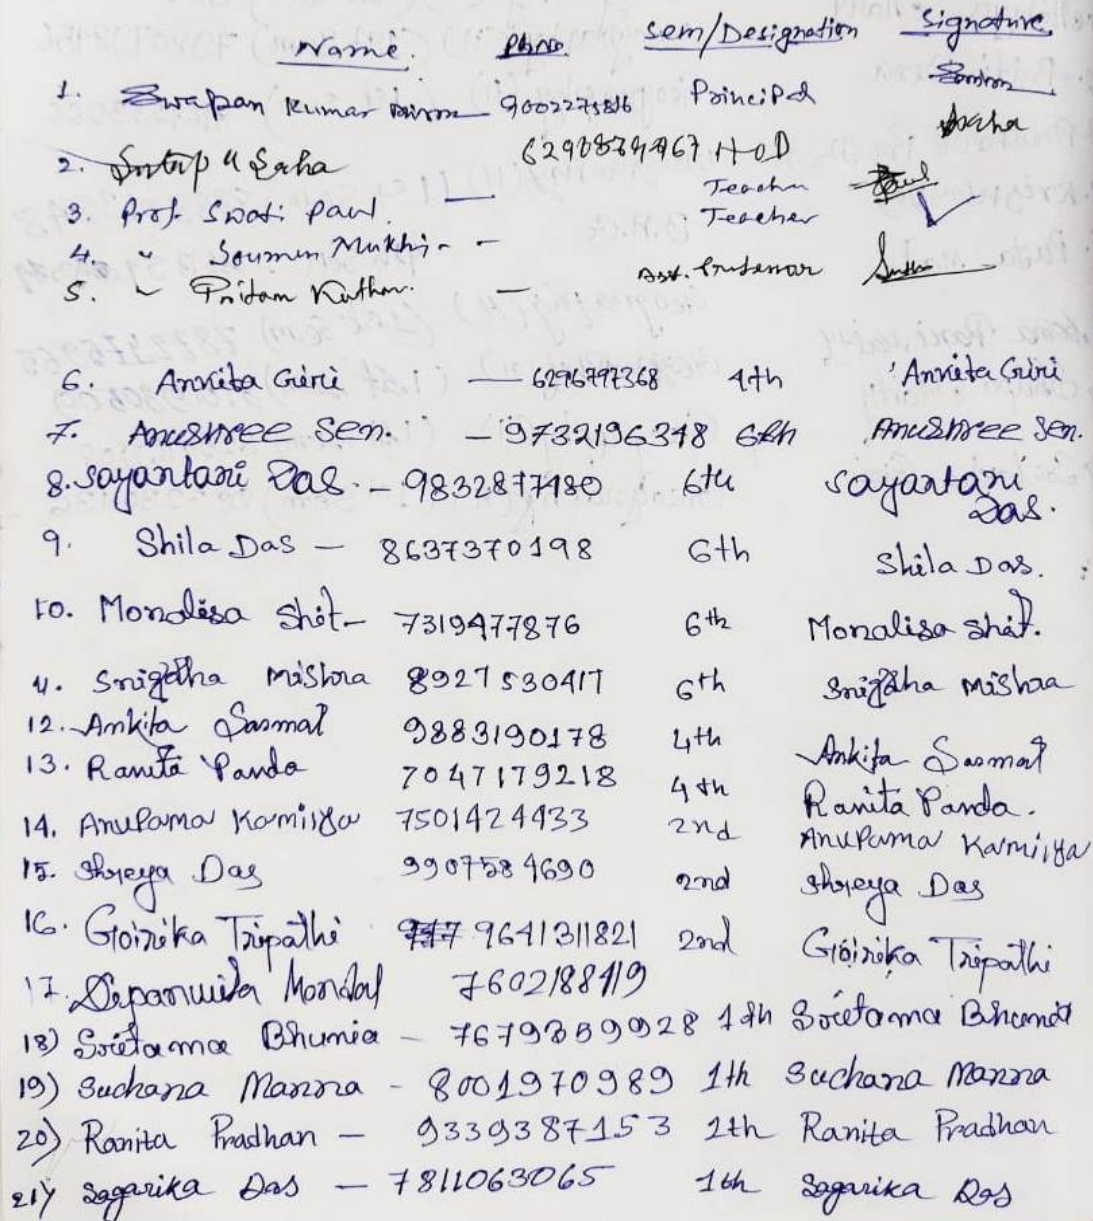 Name. Ph No. Sem/Designation Signature
1. Swapan Kumar 9002275816 Principal
2. Saha 6290874967 HOD Saha
3. Prof. Swati Paul. — Teacher Paul
4. " Soumen Mukh - Teacher
5. " Pritam — Asst. Professor
6. Ankita Giri — 6296797368 4th Ankita Giri
7. Anushree Sen. - 9732196348 6th Anushree Sen.
8. Sayantani Das. - 9832877480 6th Sayantani Das.
9. Shila Das — 8637370198 6th Shila Das.
10. Monalisa Shit- 7319477876 6th Monalisa Shit.
11. Snigdha Mishra 8927530417 6th Snigdha Mishra
12. Ankita Sasmal 9883190178 4th Ankita Sasmal
13. Ranita Panda 7047179218 4th Ranita Panda.
14. Anupama Kamilya 7501424433 2nd Anupama Kamilya
15. Shreya Das 9907584690 2nd Shreya Das
16. Goirika Tripathi 9641311821 2nd Goirika Tripathi
17. Dipanwita Mondal 7602188419
18) Sritama Bhunia - 7679359928 1th Sritama Bhunia
19) Suchana Manna - 8001970989 1th Suchana Manna
20) Ranita Pradhan — 9339387153 1th Ranita Pradhan
21) Sagarika Das — 7811063065 1th Sagarika Das